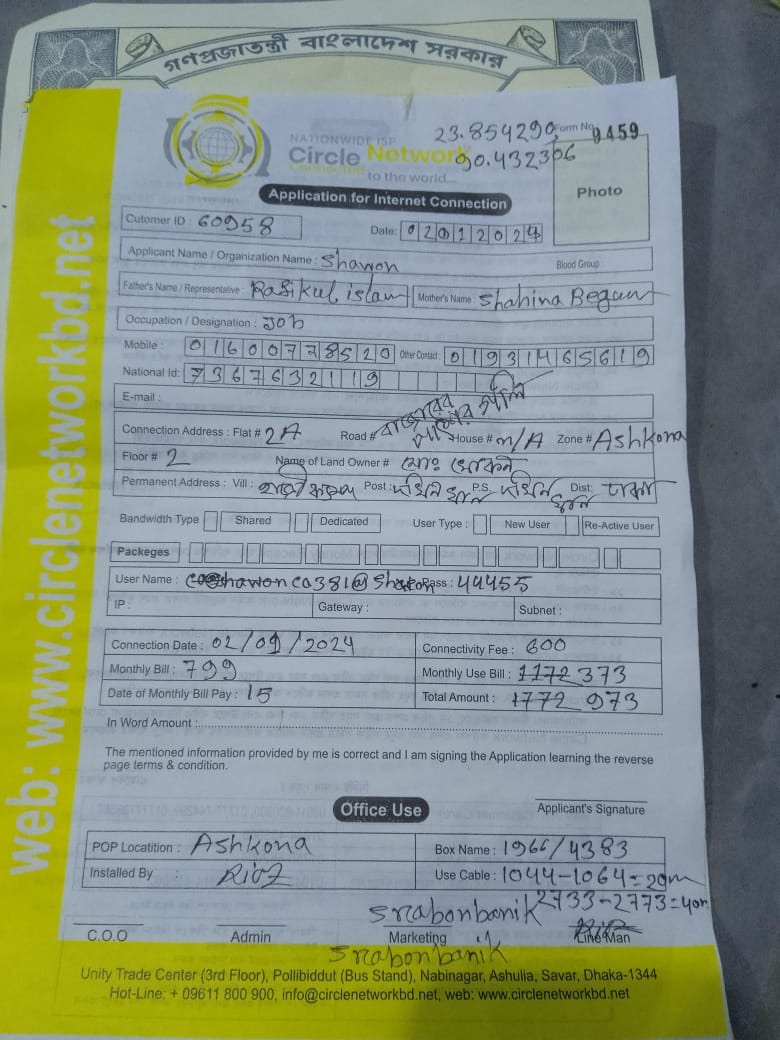 গণপ্রজাতন্ত্রী বাংলাদেশ সরকার
NATIONWIDE ISP
Circle Network
Connected
to the world...
23.854290,
90.432306
Form No. 9459
Photo
Application for Internet Connection
Cutomer ID : 60958
Date: 02012024
Applicant Name / Organization Name : Shawon
Blood Group :
Father's Name / Representative : Rasikul islam Mother's Name : Shahina Begum
Occupation / Designation : Job
Mobile : 01600778520 Other Contact: 01931465619
National Id: 7367632119
E-mail :
Connection Address : Flat # 2A Road # বাজারের House # N/A Zone # Ashkona
Floor # 2 Name of Land Owner # মোঃ
Permanent Address : Vill : Post : দক্ষিন খান P.S. দক্ষিন খান Dist: ঢাকা
Bandwidth Type Shared Dedicated User Type : New User Re-Active User
Packeges
User Name : shawonca381@ Pass : 44455
IP : Gateway : Subnet :
Connection Date : 02/09/2024 Connectivity Fee : 600
Monthly Bill : 799 Monthly Use Bill : 1172 373
Date of Monthly Bill Pay : 15 Total Amount : 1772 973
In Word Amount :
The mentioned information provided by me is correct and I am signing the Application learning the reverse
page terms & condition.
Applicant's Signature
Office Use
POP Locatition : Ashkona Box Name : 1966/4383
Installed By : Use Cable : 1044-1064=20m
2733-2773=40m
srabonbanik
C.O.O Admin Marketing Line Man
srabonbanik
Unity Trade Center (3rd Floor), Pollibiddut (Bus Stand), Nabinagar, Ashulia, Savar, Dhaka-1344
Hot-Line: + 09611 800 900, info@circlenetworkbd.net, web: www.circlenetworkbd.net
web: www.circlenetworkbd.net